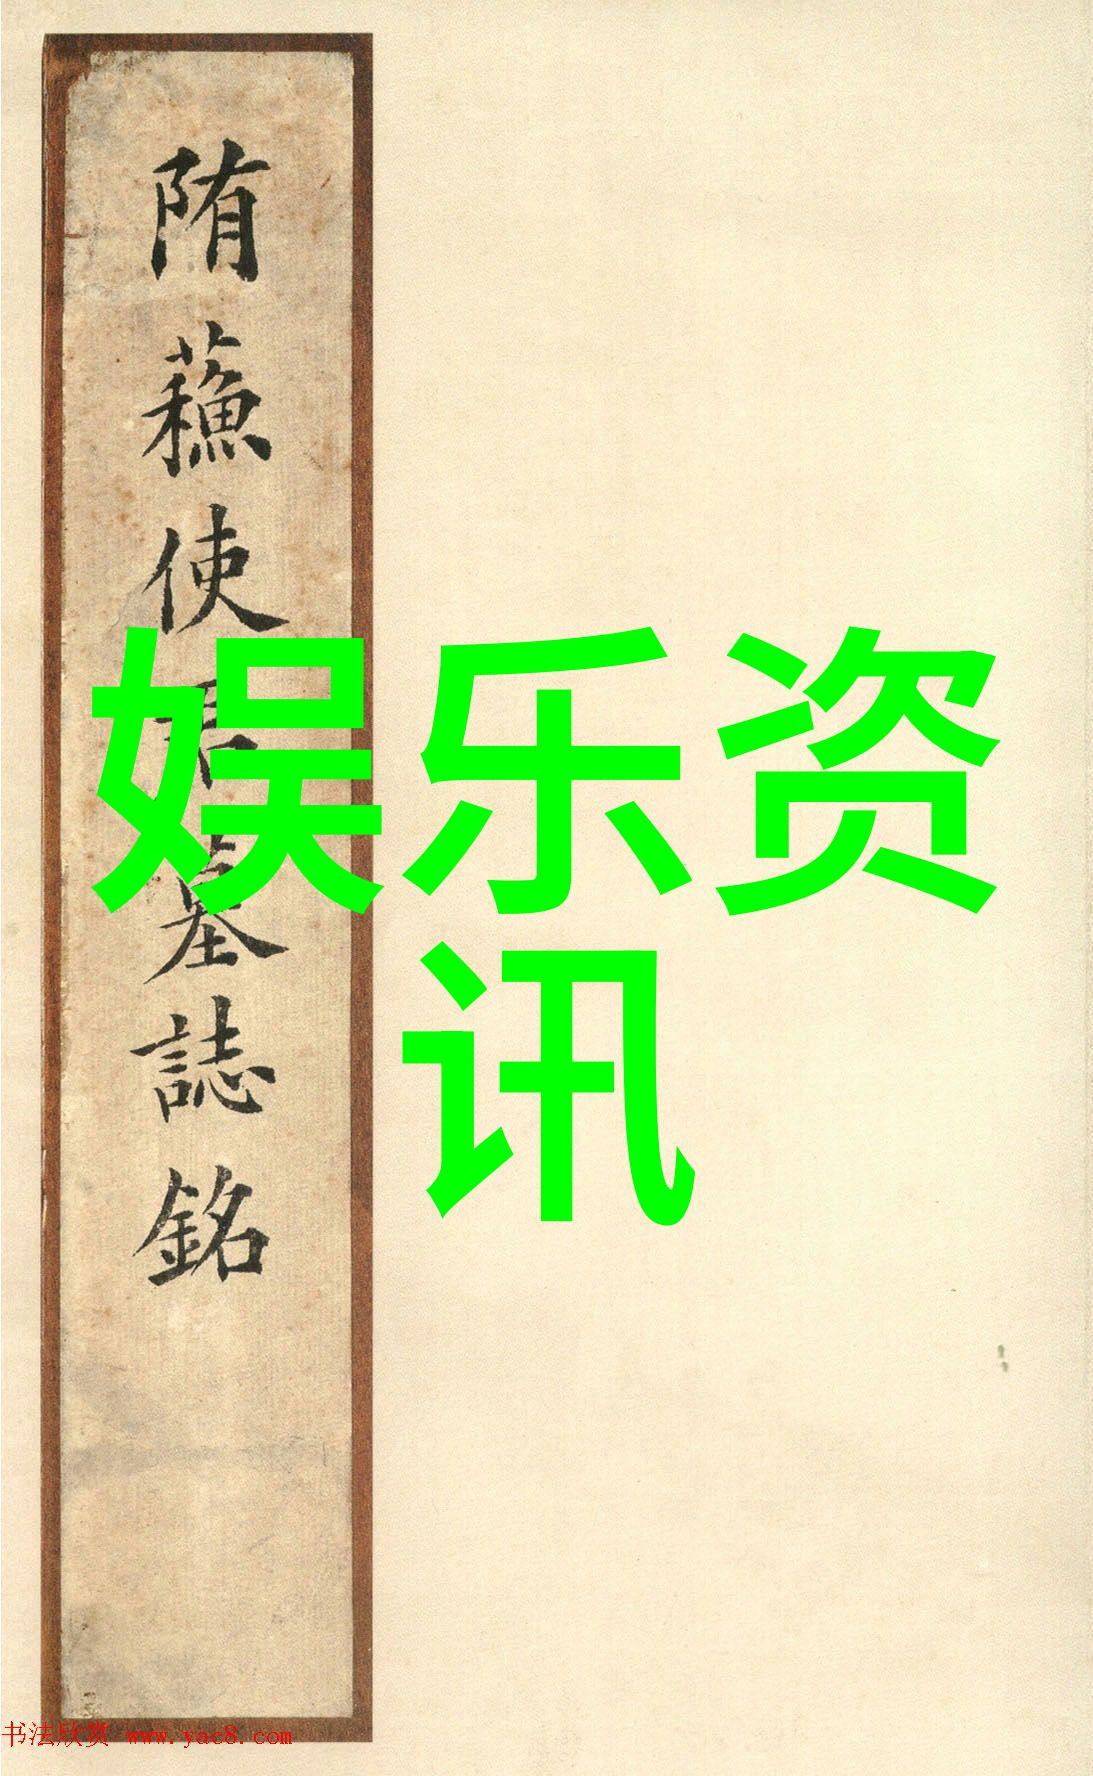 隋蘓使君墓誌銘
娱乐资
讯
书法欣赏 www.yac8.com